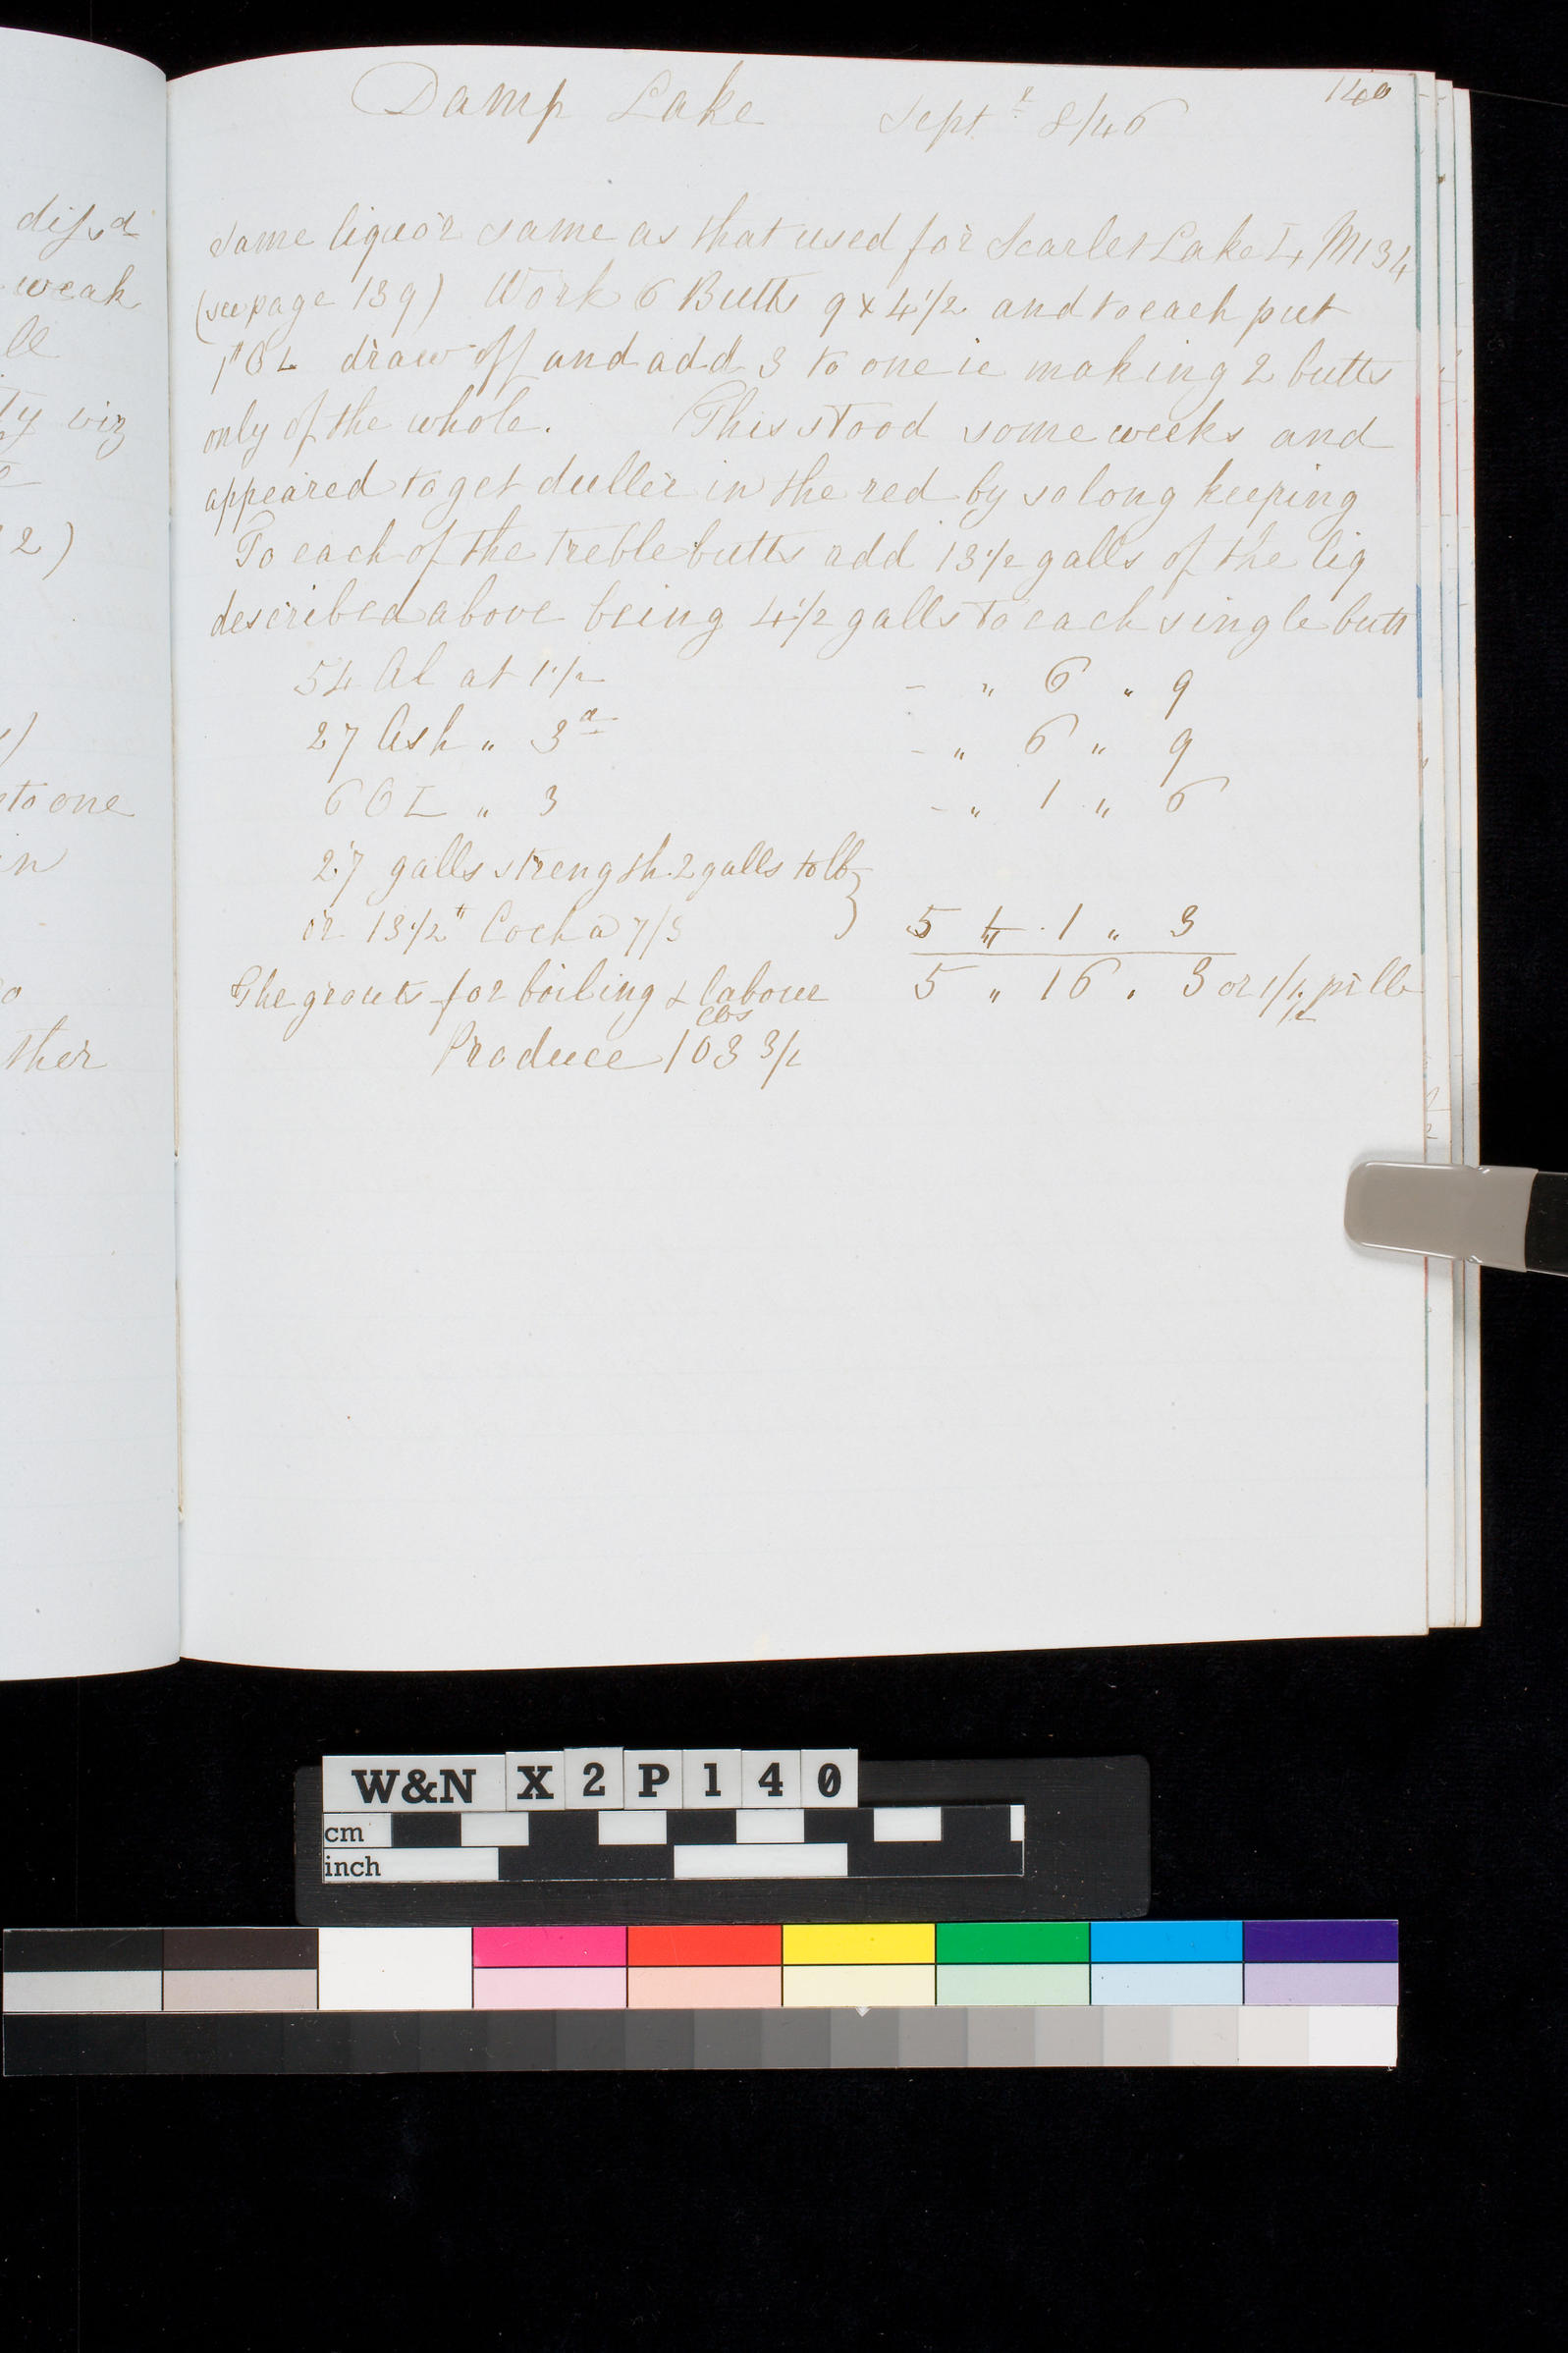 140
Damp Lake Sept r 8/46
Same liquor same as that used for Scarlet Lake L, M134
(see page 139) Work 6 Butts 9 x 4 1/2 and to each put
1" OL draw off and add 3 to one ie making 2 butts
only of the whole. This stood some weeks and
appeared to get duller in the red by so long keeping
To each of the treble butts add 13 1/2 galls of the liq
described above being 4 1/2 galls to each single butt
54 Al at 1 1/2 - " 6 " 9
27 Ash " 3 d - " 6 " 9
6 OL " 3 - " 1 " 6
27 galls strength. 2 galls to lb }
or 13 1/2 " Coch a 7/3 5 " 1 " 3
The grouts for boiling & labour 5 " 16 . 3 or 1/1 1/2 pr lb
lbs
Produce 103 3/4
disd
weak
le
ty viz
2)
to one
in
ther
W&N X2P140
cm
inch